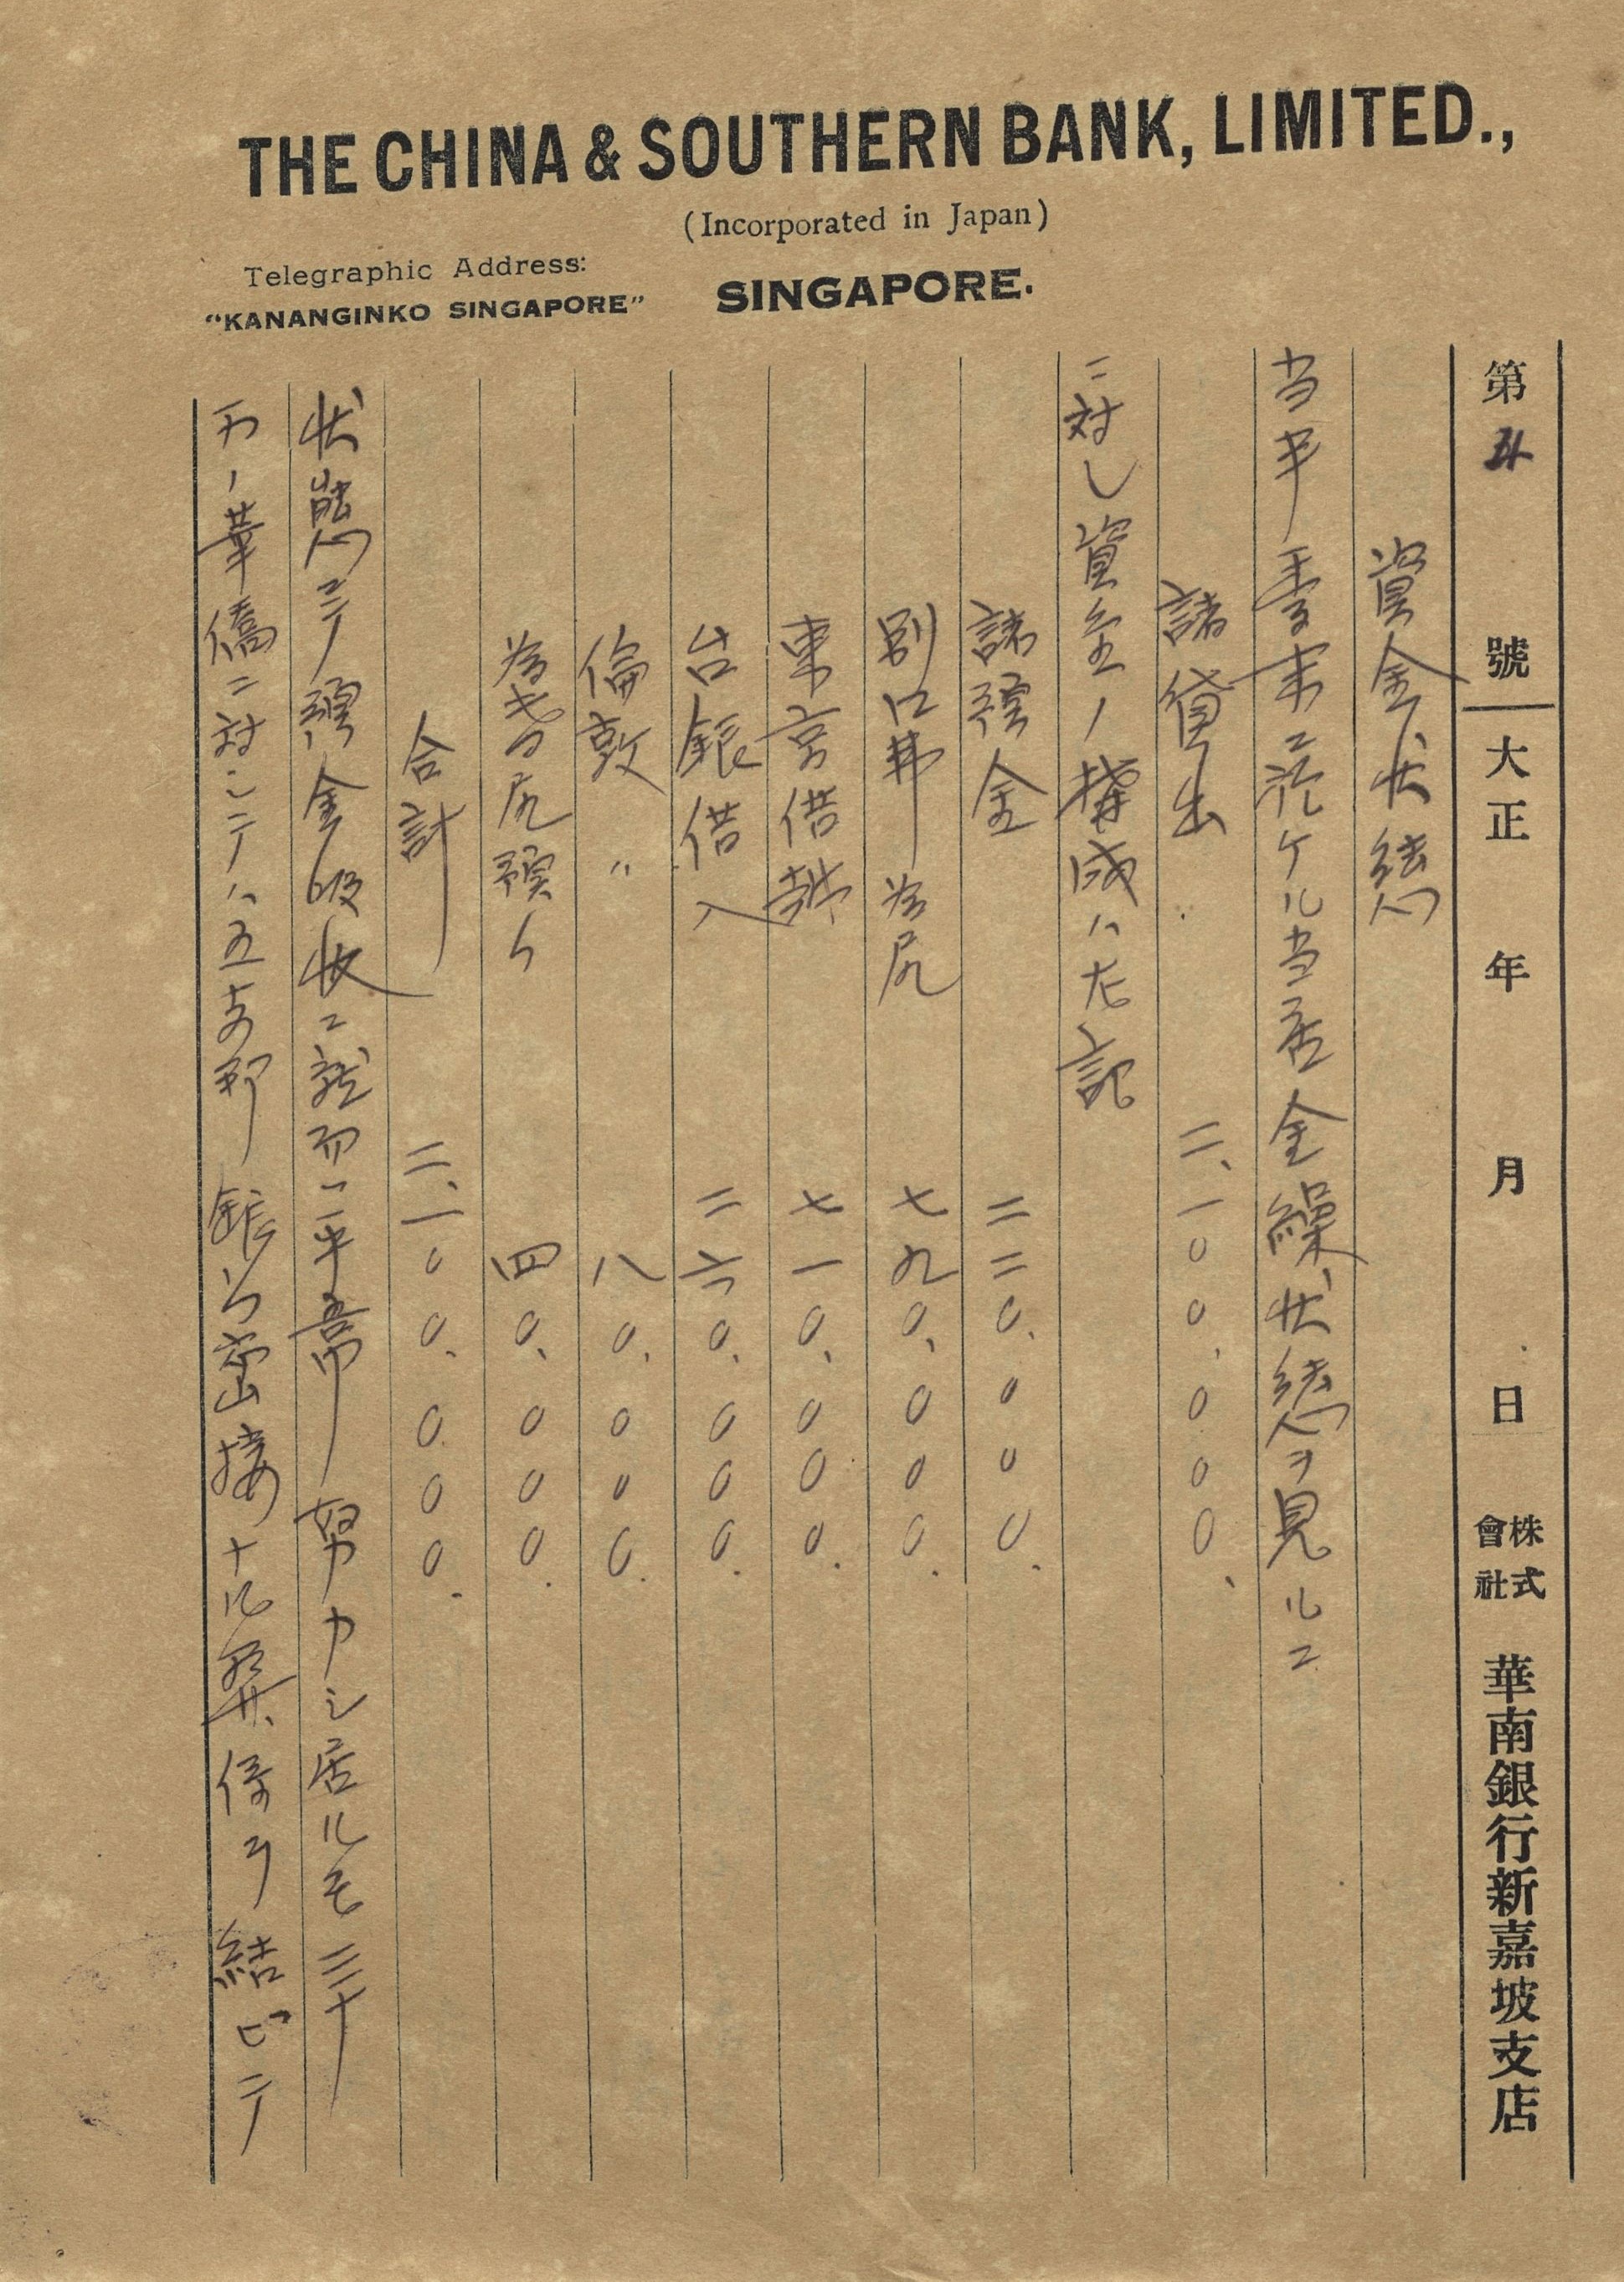 THE CHINA & SOUTHERN BANK, LIMITED.,
(Incorporated in Japan)
Telegraphic Address:
"KANANGINKO SINGAPORE"
SINGAPORE.
第 五 號 大正 年 月 日 株式會社 華南銀行新嘉坡支店
資金状態
当半季末ニ於ケル当店金繰状態ヲ見ルニ
諸貸出 二、一〇〇、〇〇〇、
ニ対し資金ノ構成ハ左記
諸預金 二二〇、〇〇〇.
別口弗為尻 七九〇、〇〇〇.
東京借越 七一〇、〇〇〇.
台銀借入 二六〇、〇〇〇.
倫敦 〃 八〇、〇〇〇.
為替尻預ヶ 四〇、〇〇〇.
合計 二、一〇〇、〇〇〇.
状態ニテ預金吸収ニ就而ハ平常努力シ居ルモ三十
万ノ華僑ニ対シテハ五支那銀行密接ナル関係ヲ結ビテ